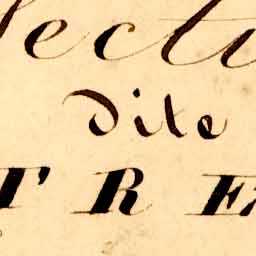 lectu
dite
T R E